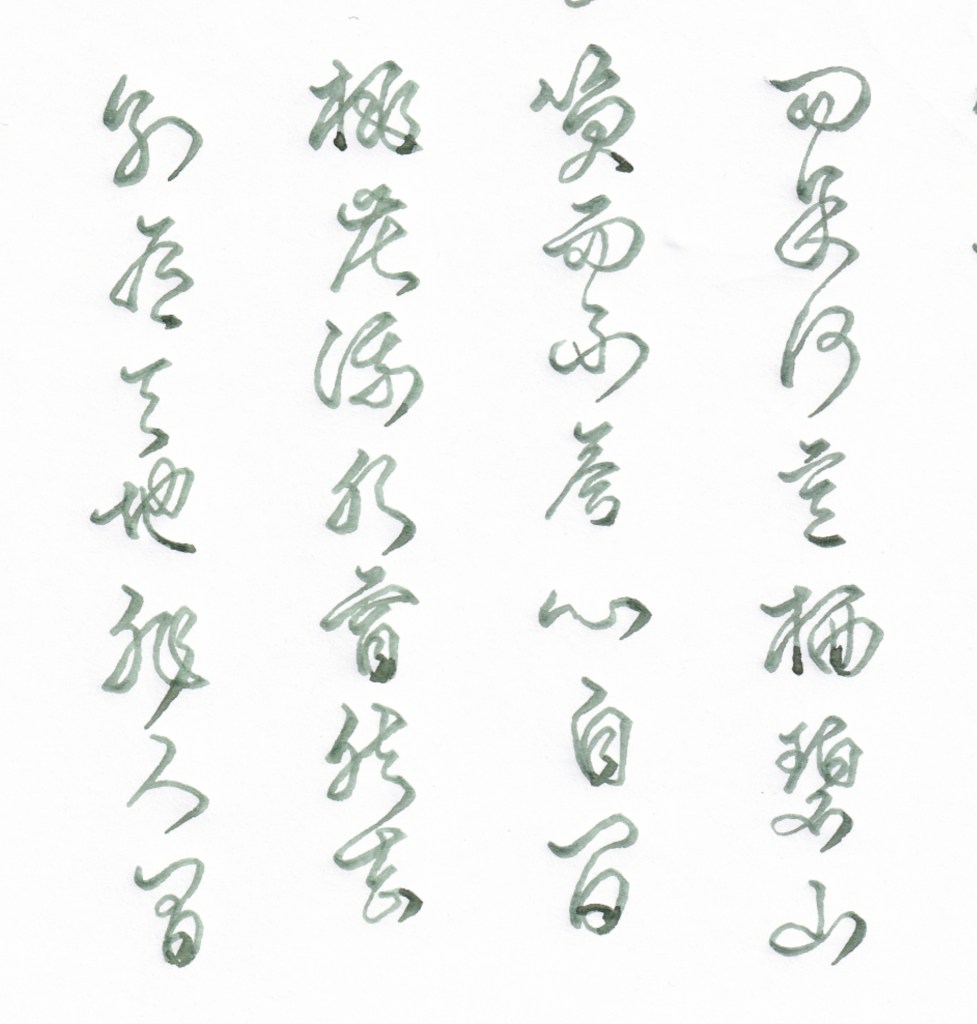 問余何意栖碧山
笑而不答心自閒
桃花流水窅然去
別有天地非人間